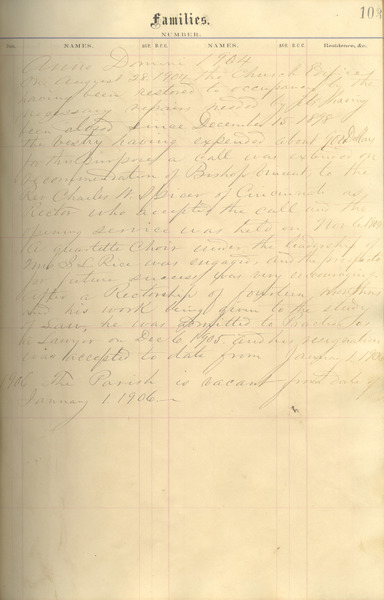 103
Families.
NUMBER.
NAMES. AGE. B.C.C. NAMES. AGE. B.C.C. Residence, &c.
Anno Domini 1904
On August 28 1904 the Church Edifice
having been restored to occupancy by the
necessary repairs needed by its having
been closed since December 15 1898
the vestry having expended about
for this purpose a call was extended on
recommendation of Bishop Vincent to the
Rev Charles W Spicer of Cincinnati as
Rector who accepted the call and the
opening service was held on Nov 6 1904
A quartette Choir under the leadership of
Mrs L Rice was engaged, and the prospects
for future success was very encouraging
After a Rectorship of fourteen months
and his work being given to the study
of Law, he was admitted to practice as
a Lawyer on Dec 6 1905 and his resignation
was accepted to date from January 1 1906
1906 The Parish is vacant from date of
January 1 1906